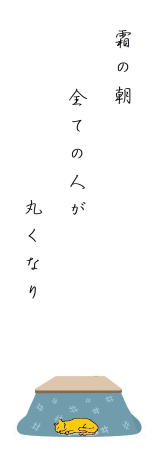 霜の朝
全ての人が
丸くなり